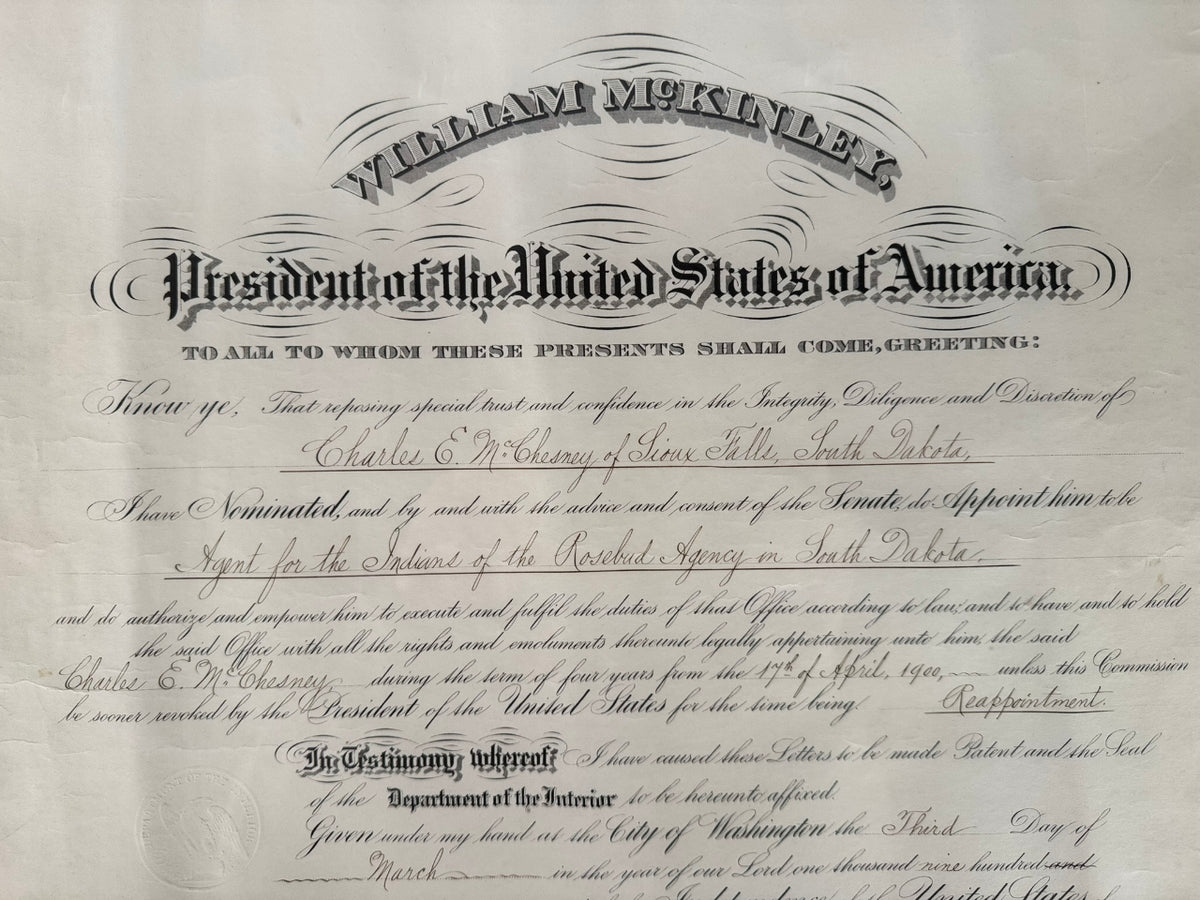 WILLIAM McKINLEY,
President of the United States of America.
TO ALL TO WHOM THESE PRESENTS SHALL COME, GREETING:
Know ye, That reposing special trust and confidence in the Integrity, Diligence and Discretion of
Charles E. McChesney of Sioux Falls, South Dakota,
I have Nominated, and by and with the advice and consent of the Senate, do Appoint him to be
Agent for the Indians of the Rosebud Agency in South Dakota.
and do authorize and empower him to execute and fulfil the duties of that Office according to law; and to have and to hold
the said Office with all the rights and emoluments thereunto legally appertaining unto him, the said
Charles E. McChesney, during the term of four years from the 17th of April, 1900, unless this Commission
be sooner revoked by the President of the United States for the time being. Reappointment.
In Testimony whereof I have caused these Letters to be made Patent and the Seal
of the Department of the Interior to be hereunto affixed.
Given under my hand at the City of Washington the Third Day of
March in the year of our Lord one thousand nine hundred and
Independence of the United States of